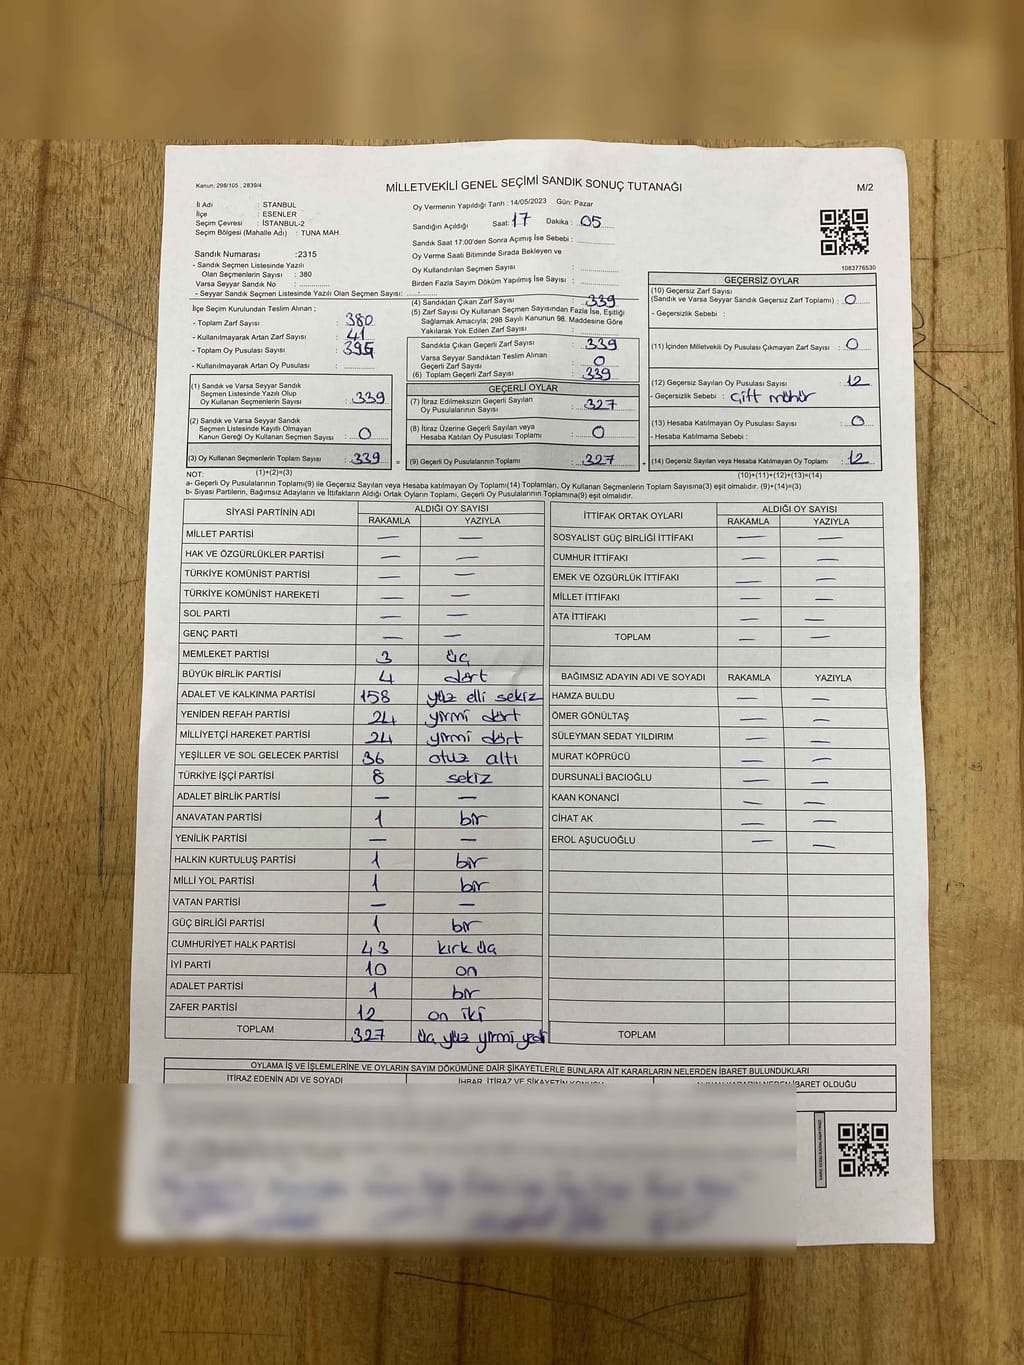 Kanun, 298/105 , 2839/4
MİLLETVEKİLİ GENEL SEÇİMİ SANDIK SONUÇ TUTANAĞI
M/2
İl Adı : İSTANBUL
İlçe : ESENLER
Seçim Çevresi : İSTANBUL-2
Seçim Bölgesi (Mahalle Adı) : TUNA MAH.
Sandık Numarası :2315
- Sandık Seçmen Listesinde Yazılı
Olan Seçmenlerin Sayısı : 380
Varsa Seyyar Sandık No : ..............
- Seyyar Sandık Seçmen Listesinde Yazılı Olan Seçmen Sayısı: ......
Oy Vermenin Yapıldığı Tarih : 14/05/2023 Gün: Pazar
Sandığın Açıldığı Saat: 17 Dakika : 05
Sandık Saat 17:00'den Sonra Açılmış İse Sebebi : ..............
Oy Verme Saati Bitiminde Sırada Bekleyen ve
Oy Kullandırılan Seçmen Sayısı : ..............
Birden Fazla Sayım Döküm Yapılmış İse Sayısı : ..............
1083776530
İlçe Seçim Kurulundan Teslim Alınan ;
- Toplam Zarf Sayısı : 380
- Kullanılmayarak Artan Zarf Sayısı : 41
- Toplam Oy Pusulası Sayısı : 395
- Kullanılmayarak Artan Oy Pusulası : ..........
(1) Sandık ve Varsa Seyyar Sandık
Seçmen Listesinde Yazılı Olup
Oy Kullanan Seçmenlerin Sayısı : 339
(2) Sandık ve Varsa Seyyar Sandık
Seçmen Listesinde Kayıtlı Olmayan
Kanun Gereği Oy Kullanan Seçmen Sayısı : 0
(3) Oy Kullanan Seçmenlerin Toplam Sayısı : 339
(1)+(2)=(3)
(4) Sandıktan Çıkan Zarf Sayısı : 339
(5) Zarf Sayısı Oy Kullanan Seçmen Sayısından Fazla İse, Eşitliği
Sağlamak Amacıyla; 298 Sayılı Kanunun 98. Maddesine Göre
Yakılarak Yok Edilen Zarf Sayısı : ..............
Sandıkta Çıkan Geçerli Zarf Sayısı : 339
Varsa Seyyar Sandıktan Teslim Alınan
Geçerli Zarf Sayısı : 0
(6) Toplam Geçerli Zarf Sayısı : 339
GEÇERLİ OYLAR
(7) İtiraz Edilmeksizin Geçerli Sayılan
Oy Pusulalarının Sayısı : 327
(8) İtiraz Üzerine Geçerli Sayılan veya
Hesaba Katılan Oy Pusulası Toplamı : 0
= (9) Geçerli Oy Pusulalarının Toplamı : 327
GEÇERSİZ OYLAR
(10) Geçersiz Zarf Sayısı
(Sandık ve Varsa Seyyar Sandık Geçersiz Zarf Toplamı) : 0
- Geçersizlik Sebebi :
(11) İçinden Milletvekili Oy Pusulası Çıkmayan Zarf Sayısı : 0
(12) Geçersiz Sayılan Oy Pusulası Sayısı : 12
- Geçersizlik Sebebi : Çift mühür
(13) Hesaba Katılmayan Oy Pusulası Sayısı : 0
- Hesaba Katılmama Sebebi :
+ (14) Geçersiz Sayılan veya Hesaba Katılmayan Oy Toplamı : 12
(10)+(11)+(12)+(13)=(14)
NOT:
a- Geçerli Oy Pusulalarının Toplamı(9) ile Geçersiz Sayılan veya Hesaba katılmayan Oy Toplamı(14) Toplamları, Oy Kullanan Seçmenlerin Toplam Sayısına(3) eşit olmalıdır. (9)+(14)=(3)
b- Siyasi Partilerin, Bağımsız Adayların ve İttifakların Aldığı Ortak Oyların Toplamı, Geçerli Oy Pusulalarının Toplamına(9) eşit olmalıdır.
SİYASİ PARTİNİN ADI ALDIĞI OY SAYISI
RAKAMLA YAZIYLA
MİLLET PARTİSİ — —
HAK VE ÖZGÜRLÜKLER PARTİSİ — —
TÜRKİYE KOMÜNİST PARTİSİ — —
TÜRKİYE KOMÜNİST HAREKETİ — —
SOL PARTİ — —
GENÇ PARTİ — —
MEMLEKET PARTİSİ 3 üç
BÜYÜK BİRLİK PARTİSİ 4 dört
ADALET VE KALKINMA PARTİSİ 158 yüz elli sekiz
YENİDEN REFAH PARTİSİ 24 yirmi dört
MİLLİYETÇİ HAREKET PARTİSİ 24 yirmi dört
YEŞİLLER VE SOL GELECEK PARTİSİ 36 otuz altı
TÜRKİYE İŞÇİ PARTİSİ 8 sekiz
ADALET BİRLİK PARTİSİ — —
ANAVATAN PARTİSİ 1 bir
YENİLİK PARTİSİ — —
HALKIN KURTULUŞ PARTİSİ 1 bir
MİLLİ YOL PARTİSİ 1 bir
VATAN PARTİSİ — —
GÜÇ BİRLİĞİ PARTİSİ 1 bir
CUMHURİYET HALK PARTİSİ 43 kırk üç
İYİ PARTİ 10 on
ADALET PARTİSİ 1 bir
ZAFER PARTİSİ 12 on iki
TOPLAM 327 üç yüz yirmi yedi
İTTİFAK ORTAK OYLARI ALDIĞI OY SAYISI
RAKAMLA YAZIYLA
SOSYALİST GÜÇ BİRLİĞİ İTTİFAKI — —
CUMHUR İTTİFAKI — —
EMEK VE ÖZGÜRLÜK İTTİFAKI — —
MİLLET İTTİFAKI — —
ATA İTTİFAKI — —
TOPLAM — —
BAĞIMSIZ ADAYIN ADI VE SOYADI RAKAMLA YAZIYLA
HAMZA BULDU — —
ÖMER GÖNÜLTAŞ — —
SÜLEYMAN SEDAT YILDIRIM — —
MURAT KÖPRÜCÜ — —
DURSUNALİ BACIOĞLU — —
KAAN KONANCİ — —
CİHAT AK — —
EROL AŞUCUOĞLU — —
TOPLAM
OYLAMA İŞ VE İŞLEMLERİNE VE OYLARIN SAYIM DÖKÜMÜNE DAİR ŞİKAYETLERLE BUNLARA AİT KARARLARIN NELERDEN İBARET BULUNDUKLARI
İTİRAZ EDENİN ADI VE SOYADI İHBAR, İTİRAZ VE ŞİKAYETİN KONUSU ALINAN KARARIN NEDEN İBARET OLDUĞU